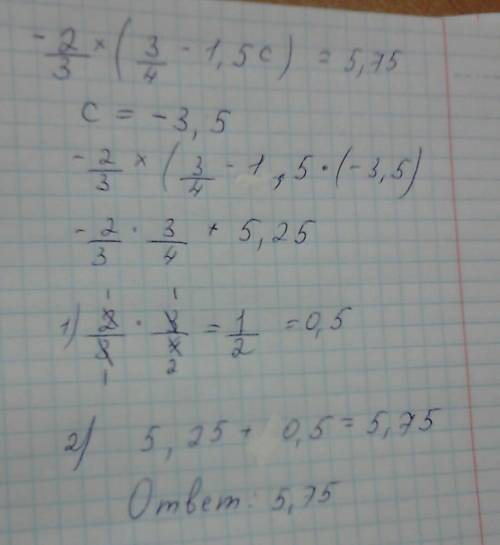 -2/3 × (3/4 - 1,5c) = 5,75
c = -3,5
-2/3 × (3/4 - 1,5·(-3,5)
-2/3 · 3/4 + 5,25
1) 2/3 · 3/4 = 1/2 = 0,5
2) 5,25 + 0,5 = 5,75
Ответ: 5,75